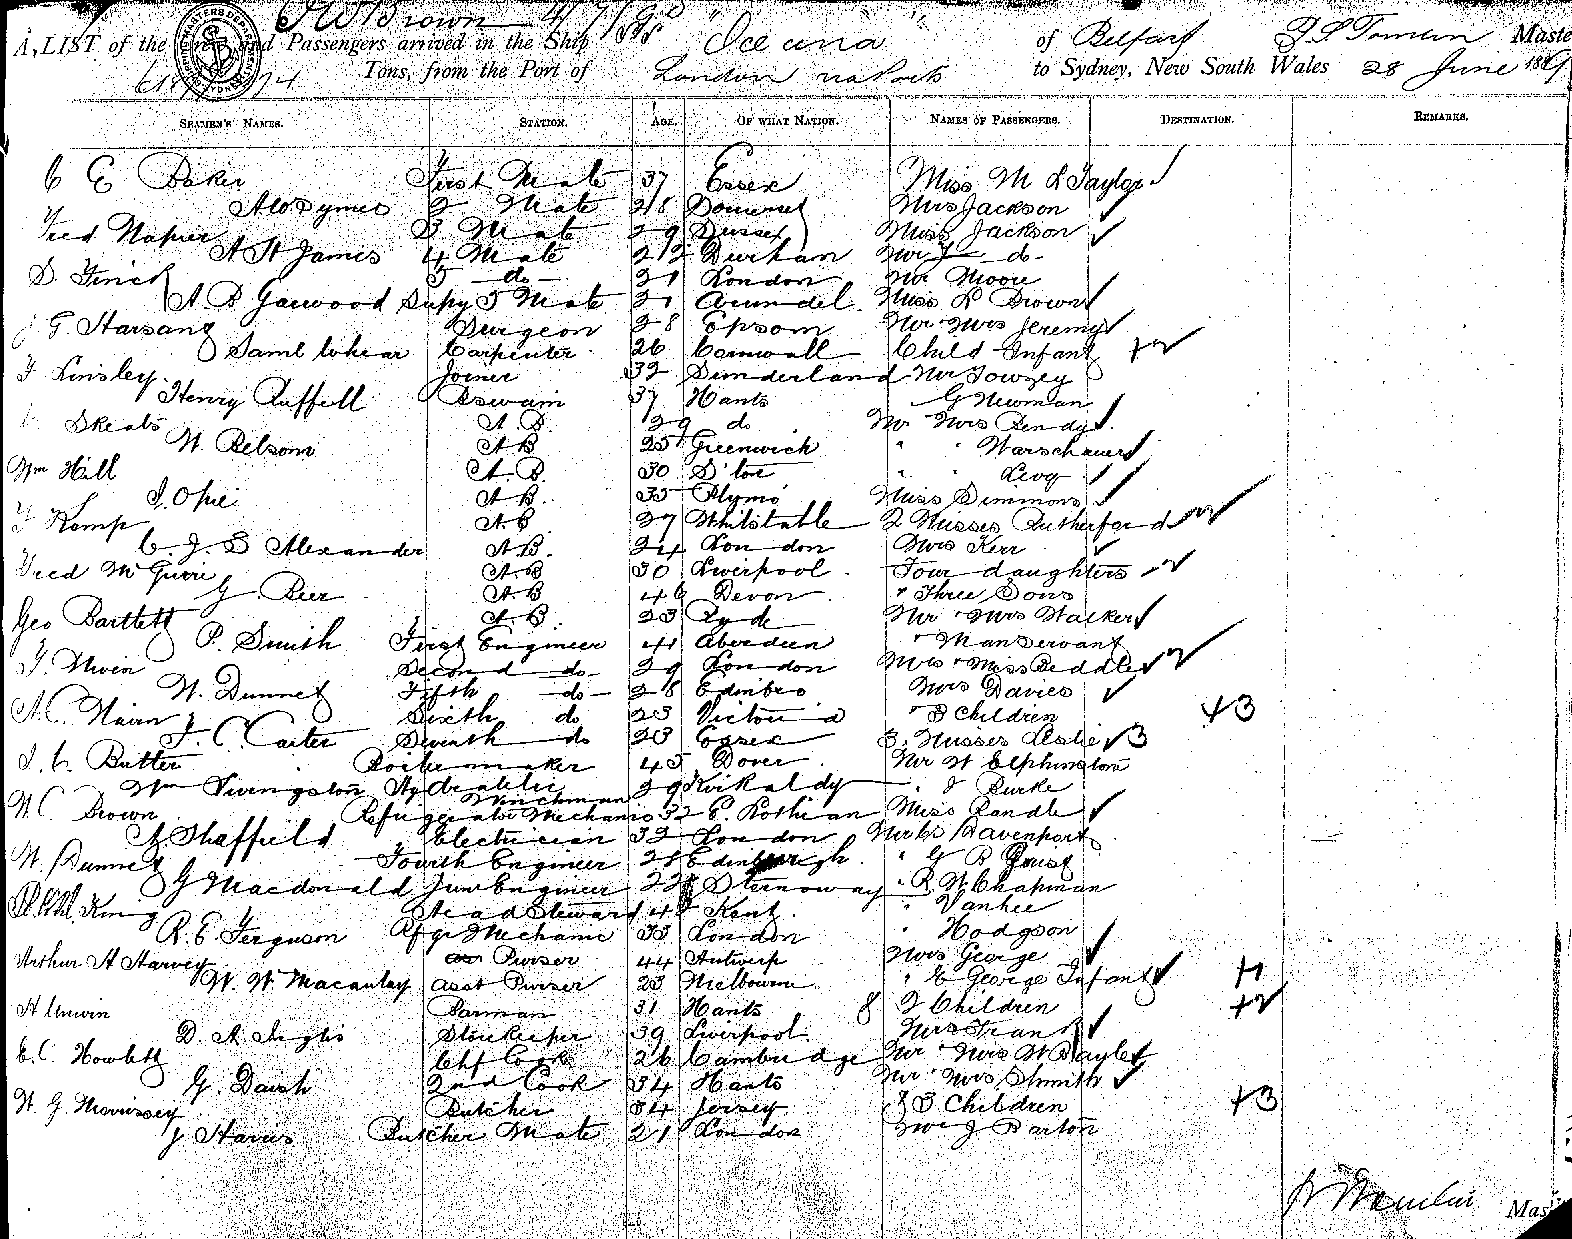 J W Brown 4/7/89
A LIST of the Crew and Passengers arrived in the Ship S.S. "Oceana" of Belfast P. S. Tomlin Master
Tons, from the Port of London via Ports to Sydney, New South Wales 28 June 1889
SEAMEN'S NAMES. STATION. AGE. OF WHAT NATION. NAMES OF PASSENGERS. DESTINATION. REMARKS.
C E Baker First Mate 37 Essex Miss M L Taylor
A W Symes 2 Mate 28 Somerset Mrs Jackson
Fred Napier 3 Mate 29 Sussex Miss Jackson
A St James 4 Mate 22 Durham Mr do
S. Finch 5 do 21 London Mr Moore
A. B Garwood Supy 5 Mate 21 Arundel Miss L Brown
J. G. Harsang Surgeon 28 Epsom Mr Mrs Jeremy
Saml Carpenter 26 Cornwall Child Infant +2
F Linsley Joiner 32 Sunderland Mr Towzey
Henry Ruffell Bswain 37 Hants G Newman
Skeats A.B 29 do Mr Mrs Bendy
W. Belsom AB 25 Greenwich " " Warschauer
Wm Hill A.B. 30 " " Levy
J. Opie AB 35 Plymo Miss Simmons
F Kemp AB 27 Whitstable 2 Misses Rutherford
C. J. S Alexander A.B. 24 London Mrs Kerr
Fred McGuire A.B 30 Liverpool Four daughters
G. Beer A.B 46 Devon " Three Sons
Geo Bartlett A.B 23 Ryde Mr Mrs Walker
P. Smith First Engineer 41 Aberdeen " Manservant
Second do 29 London Mrs Miss Beddale
W. Dunnet Fifth do 28 Edinbro Mrs Davies
A. C. Nairn Sixth do 23 Victoria " 3 Children +3
J. C. Carter Seventh do 23 Essex 3 Misses Leslie 3
Butter Boilermaker 45 Dover Mr W Elphinstone
Wm Livingston Hydraulic Winchman 29 Kirkaldy " J Burke
W. C. Brown Refrigerator Mechanic 32 E. Lothian Miss Randle
A. Shaffield Electrician 32 London Mr Davenport
W. Dunnet Fourth Engineer 28 Edinburgh " G B
G Macdonald Junr Engineer 22 Stornoway " R. W. Chapman
King Head Steward 48 Kent " Vanhee
R. E Ferguson Rfgr Mechanic 33 London " Hodgson
Arthur H Harvey Purser 44 Antwerp Mrs George
W. W. Macaulay asst Purser 23 Melbourne " E George Infant +1
A Unwin Barman 31 Hants 2 Children +2
D. A. Inglis Storekeeper 39 Liverpool Mrs
E. C. Howlett Chf Cook 26 Cambridge Mr Mrs W Bayley
G. Daish 2nd Cook 34 Hants Mr Mrs Shmith
W. G. Morrissey Butcher 34 Jersey 3 Children +3
J Harris Butcher Mate 21 London J Barton
Master